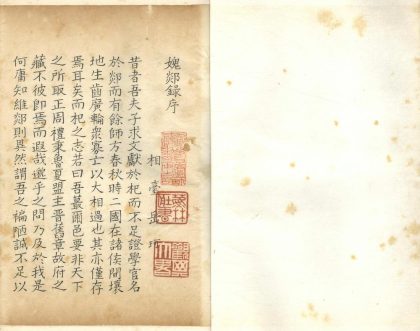 媿郯錄序
相臺岳珂
昔者吾夫子求文獻於杞而不足證學官名
於郯而有餘師方春秋時二國在諸侯間壤
地生齒廣輪衆寡士以大相過也其亦僅存
焉耳矣而杞之志若曰吾蕞爾邑要非天下
之所取正周禮秉魯夏盟主晉舊章故府之
藏不彼即焉而遐哉邈乎之問乃及於我是
何庸知維郯則異然謂吾之褊陋誠不足以